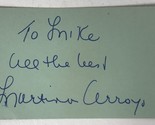 To Mike
all the best
Martina Arroyo